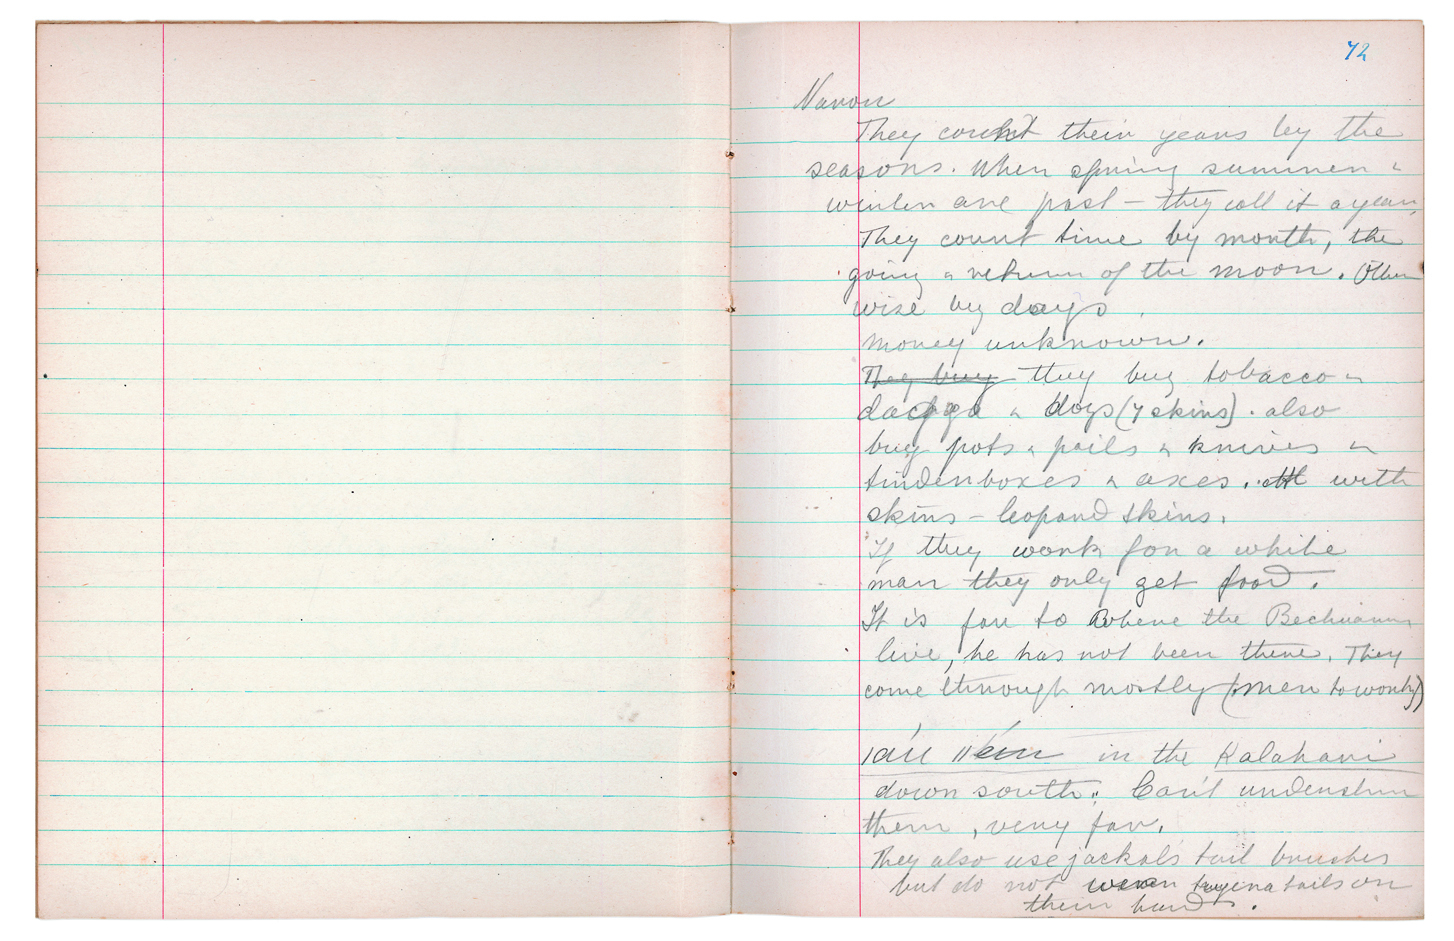 72
Naron
They count their years by the
seasons. When spring summer &
winter are past – they call it a year,
They count time by month, the
going & return of the moon. Other
wise by days.
Money unknown.
They buy they buy tobacco &
dacgga & dogs (7 skins). also
buy pots & pails & knives &
tinderboxes & axes. all with
skins – leopard skins.
If they work for a white
man they only get food.
It is far to where the Bechuanas
live, he has not been there. They
come through mostly (men to work)
in the Kalahari
down south. Can't understand
them, very far.
They also use jackals tail brushes
but do not wear hyena tails on
their